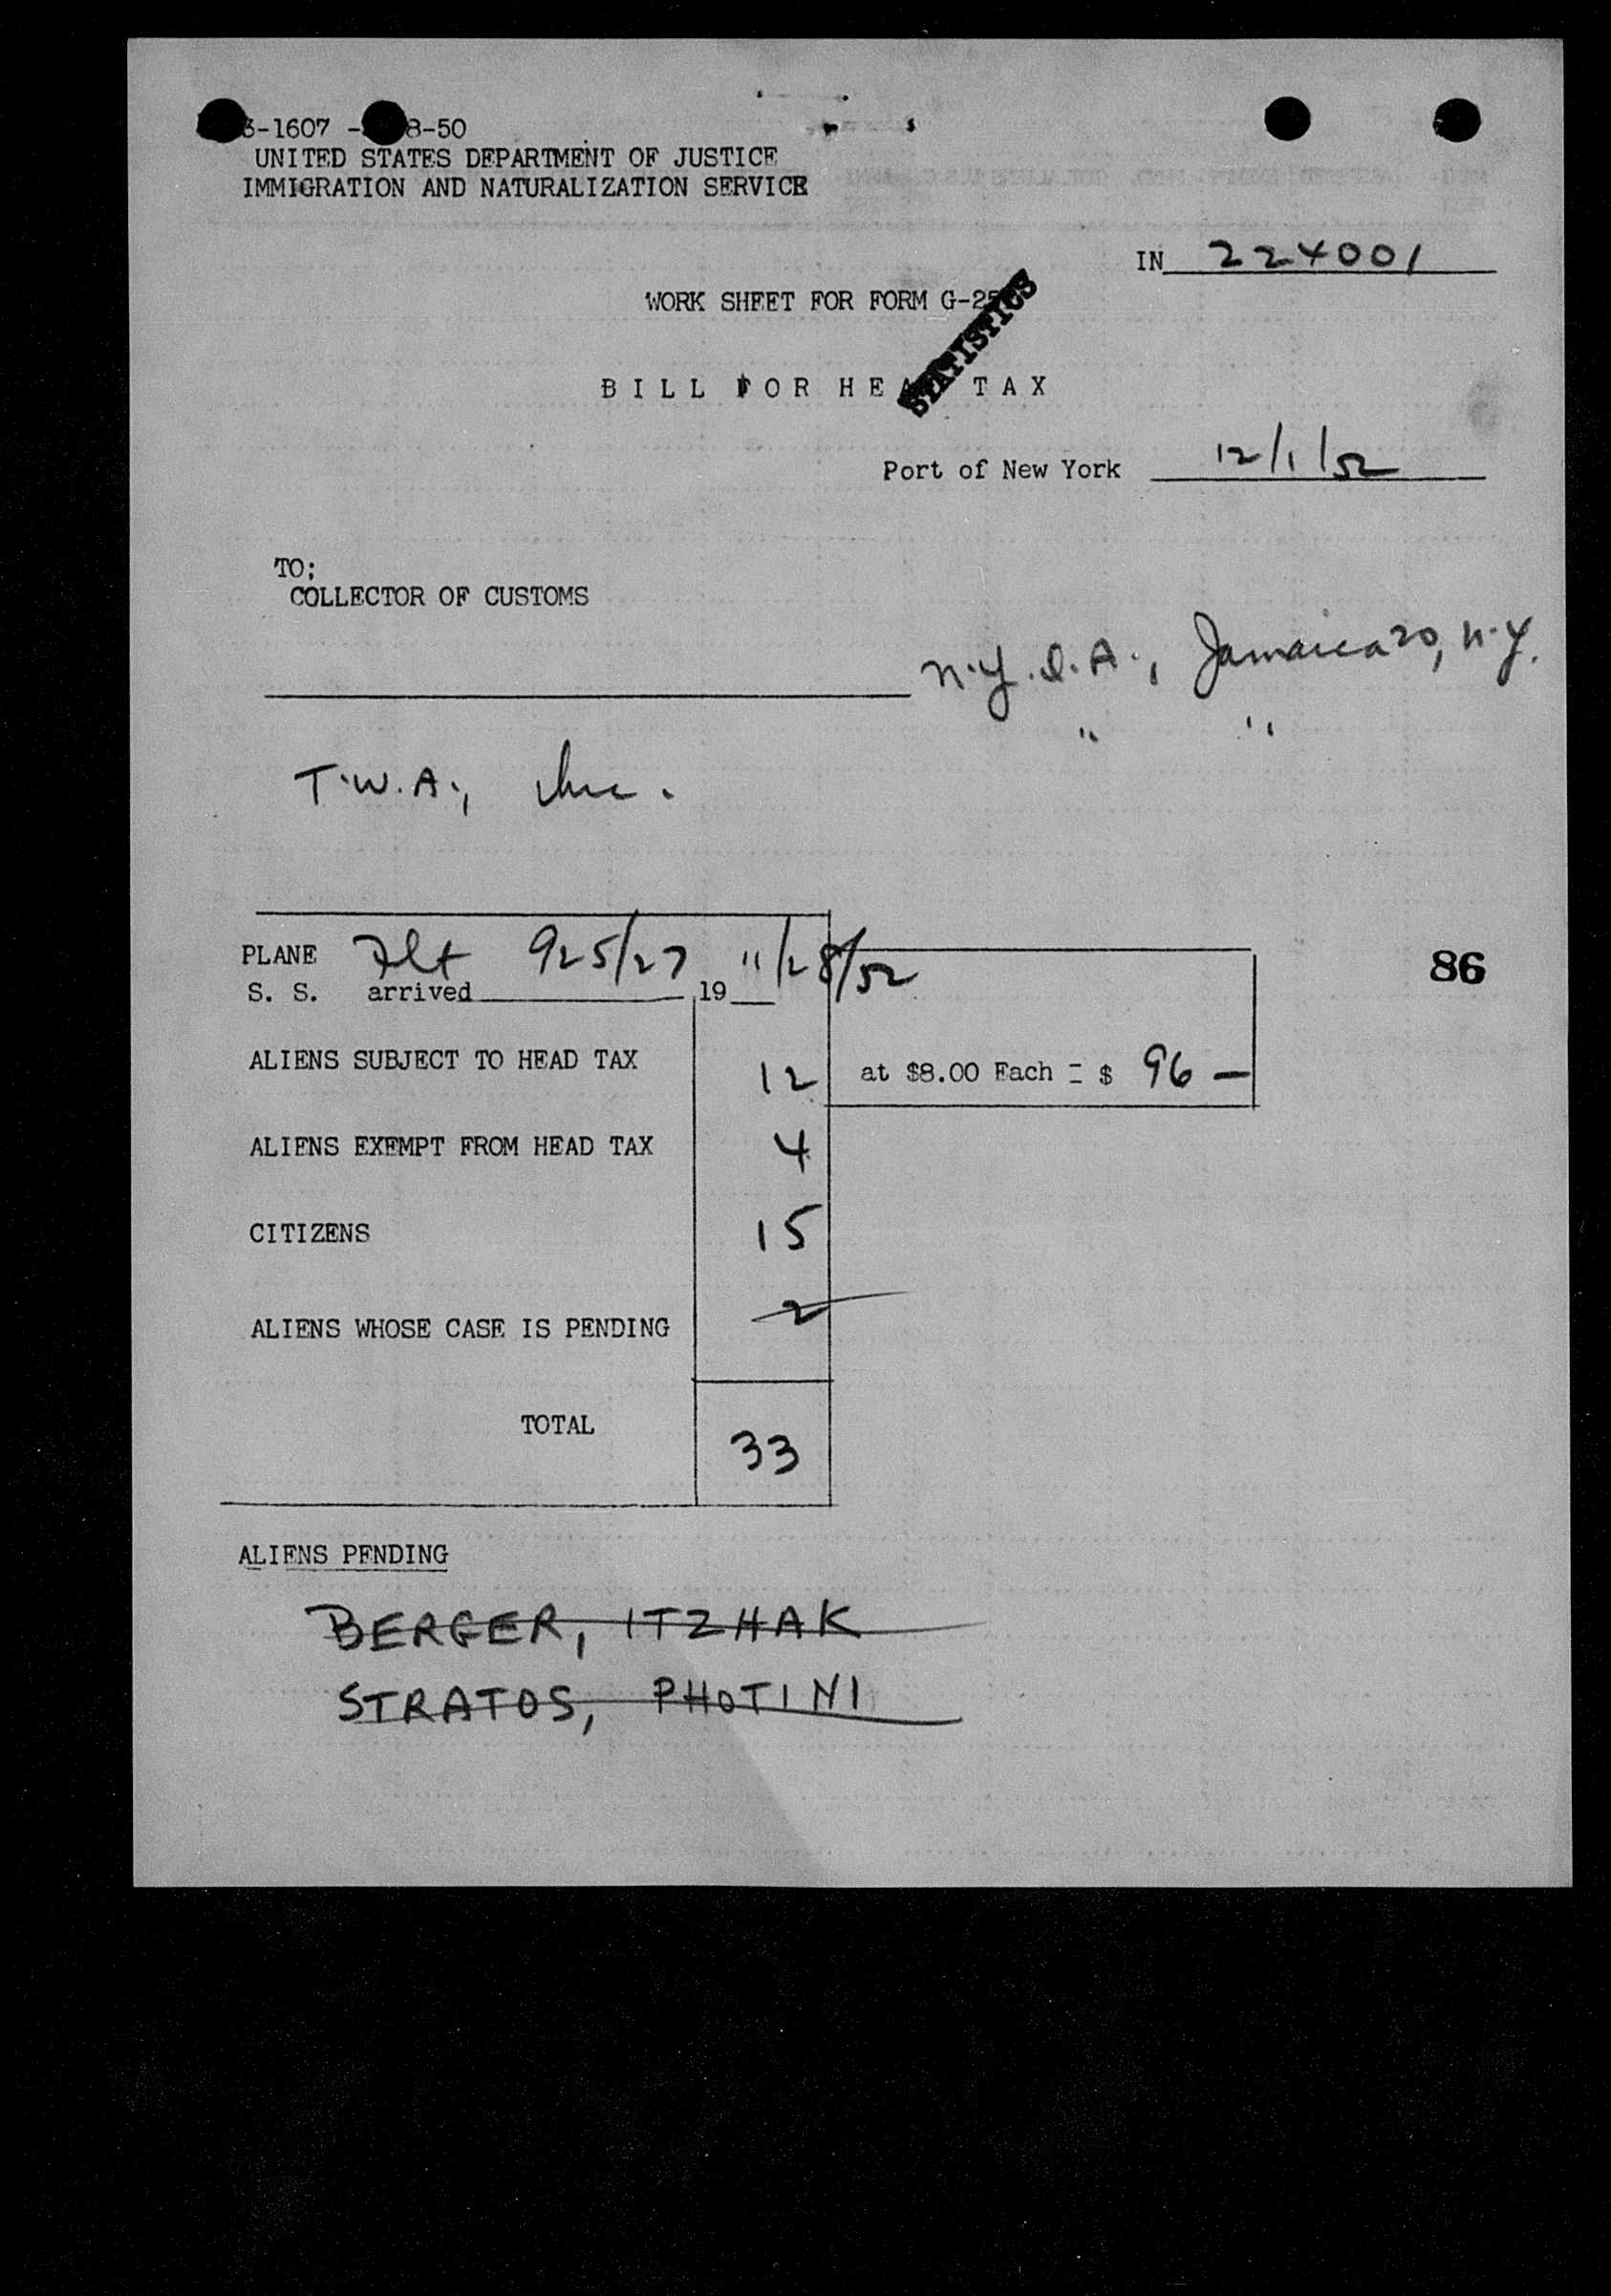 3-1607 - 8-50
UNITED STATES DEPARTMENT OF JUSTICE
IMMIGRATION AND NATURALIZATION SERVICE
IN 224001
WORK SHEET FOR FORM G-25
STATISTICS
BILL FOR HEAD TAX
Port of New York 12/1/52
TO;
COLLECTOR OF CUSTOMS
N.Y.I.A., Jamaica 20, N.Y.
" "
T.W.A., Inc.
PLANE Flt 925/27 11/28/52
S. S. arrived 19
86
ALIENS SUBJECT TO HEAD TAX 12 at $8.00 Each = $ 96 —
ALIENS EXEMPT FROM HEAD TAX 4
CITIZENS 15
ALIENS WHOSE CASE IS PENDING 2
TOTAL 33
ALIENS PENDING
BERGER, ITZHAK
STRATOS, PHOTINI